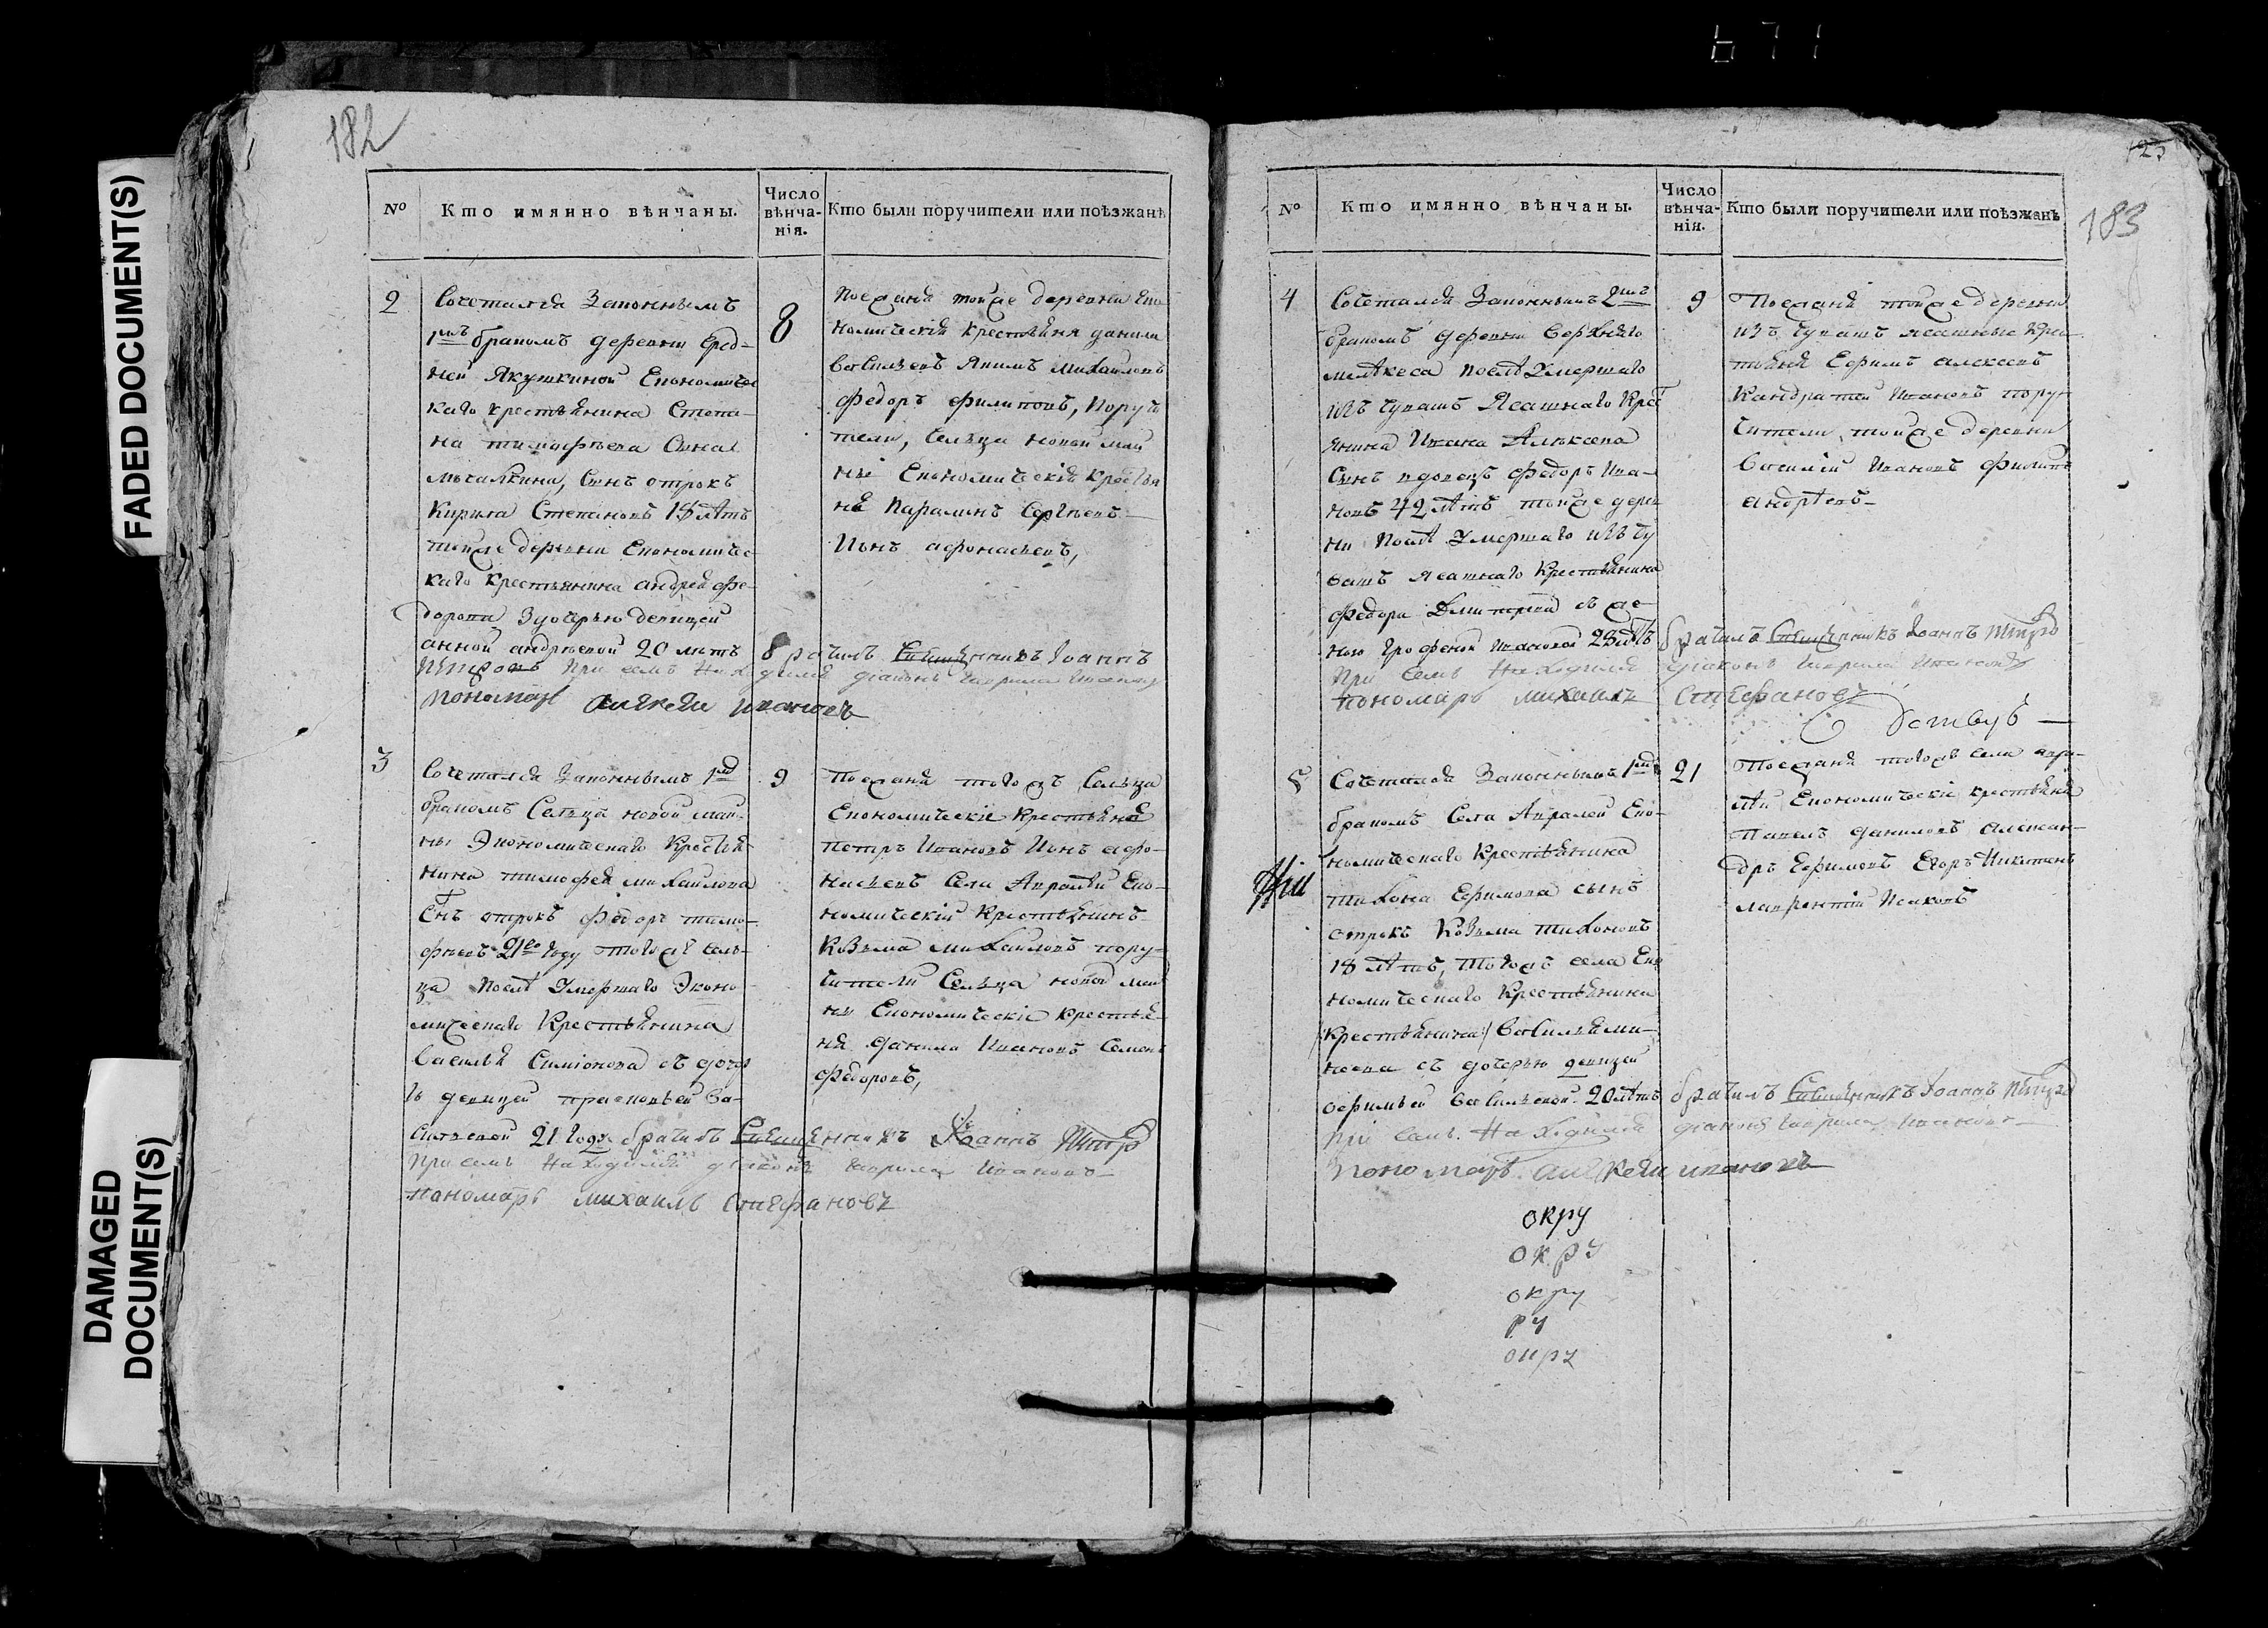 671
182
FADED DOCUMENT(S)
DAMAGED
DOCUMENT(S)
№
Кто имянно вѣнчаны.
Число
вѣнча-
нія.
Кто были поручители или поѣзжанѣ
2
Сочетался Законнымъ
1мъ бракомъ деревни Сред-
ней Якушкиной Економичес
каго крестьянина Степа-
на Тимофѣева Сына
Сынъ отрокъ
Кирила Степановъ 18 лѣтъ
тойже деревни Економичес-
каго крестьянина андрея Фе-
дорова Здочерью девицей
анной андрѣевой 20 лѣтъ
8
Поезжаня тойже деревни Еко
номическія крестьяня данила
василъевъ Якимъ михайловъ
федоръ филиповъ, Поручи
тели, Селъца новой май
ны Економическія крестья
нѣ Сергѣевъ
Ионъ афонасьевъ,
брачилъ Священникъ Iоаннъ
Петровъ При семъ находился діаконъ гаврила Ивановъ
пономарь алексеи ивановъ
3
Сочетался Законнымъ 1мъ
бракомъ Селъца новой май-
ны Экономическаго Крестья
нина тимофея михайлова
Снъ отрокъ федоръ тимо-
фѣевъ 21го году тогоже сель-
ца послѣ Умершаго Эконо
мическаго Крестьянина
василья Симіонова съ дочер
ю девицей прасковьей Ва-
сильевой 21 году
9
Поезжаня тогожъ Селъца
Економическіе крестьянѣ
петръ Ивановъ Ионъ афо-
насьевъ Села Апралѣй Еко-
номическій крестьянинъ
Козьма михайловъ пору-
чители Селъца новой май
ны Економическіе крестья
ня Данила Ивановъ Семенъ
федоровъ,
брачилъ Священникъ Iоаннъ Петръ
При семъ Находился діаконъ гаврила Ивановъ
пономарь михаилъ Стефановъ
123
183
№
Кто имянно вѣнчаны.
Число
вѣнча-
нія.
Кто были поручители или поѣзжанѣ
4
Сочетался Законнымъ 2мъ
бракомъ деревни верхняго
мелѣкеса послѣ Умершаго
изъ чувашъ Ясашнаго Крест
янина Ивана Алексеева
Сынъ вдовецъ федоръ Ива-
новъ 42 лѣтъ тойже дерев
ни послѣ Умершаго изъ чу
вашъ ясашнаго Крестьянина
федора съ же-
ною Ивановой 28 лѣтъ
9
Поезжаня тойже деревни
изъ чувашъ ясашные крес
тьяня Ефимъ алексеевъ
Кандратей Ивановъ пору-
чители тойже деревни
василій Ивановъ филипъ
андрѣевъ
брачилъ Священникъ Iоаннъ Петръ
При семъ Находился діаконъ гаврила Ивановъ
пономарь михаилъ Стефановъ
5
Сочетался Законнымъ 1мъ
бракомъ Села Апралей Еко-
номическаго Крестьянина
тихона Ефимова сынъ
отрокъ Козьма тихоновъ
18 лѣтъ, тогожъ села Еко
номическаго Крестьянина
/крестьянина/
съ дочерью девицей
васильевой 20 лѣтъ
21
Поезжаня тогожъ села апра-
лѣй Економическіе крестьяня
Павелъ даниловъ алексан-
дръ Ефимовъ Егоръ Никитинъ
лаврентій Исаковъ
брачилъ Священникъ Iоаннъ Петръ
При семъ Находился діаконъ гаврила Ивановъ
пономарь алексеи ивановъ
окру
окру
окру
ру
окру